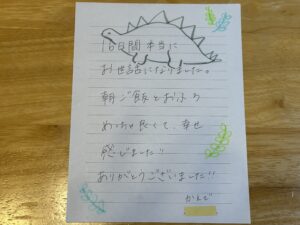 16日間本当に
お世話になりました。
朝ご飯とおふろ
めっちゃ良くて、幸せ
感じました!!
ありがとうございました!!
かんで